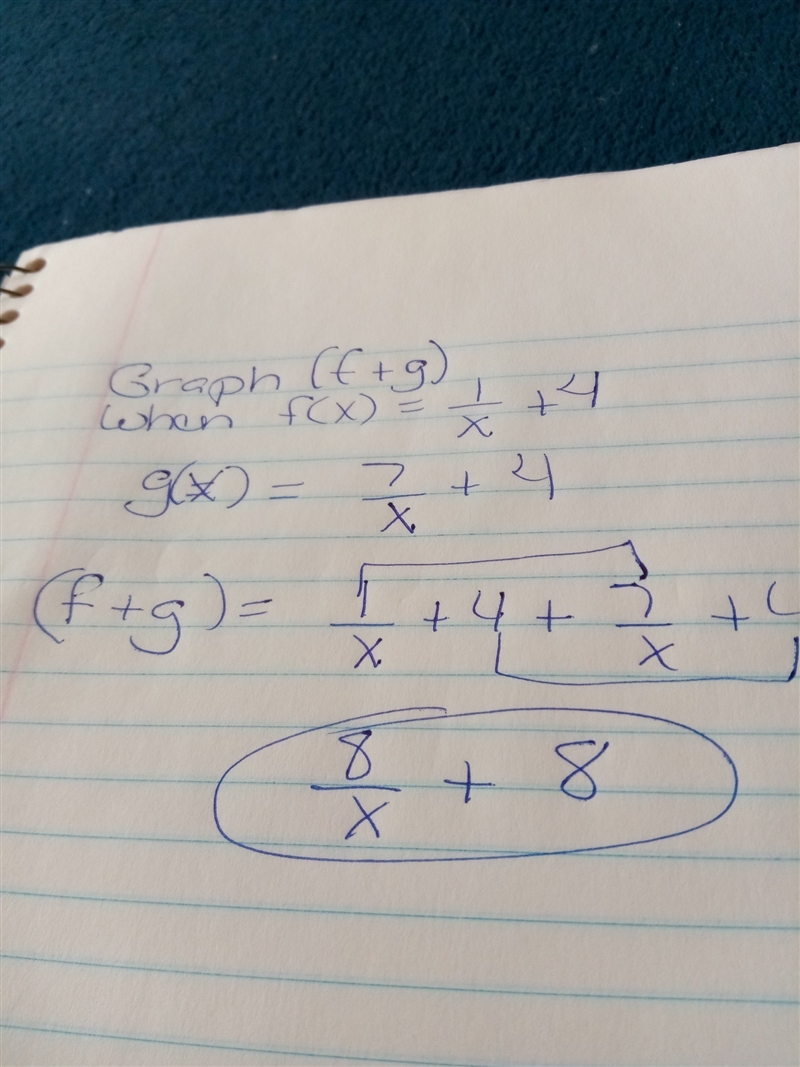 Graph (f+g)
When f(x) = 1/x + 4
g(x) = 7/x + 4
(f+g) = 1/x + 4 + 7/x + 4
8/x + 8